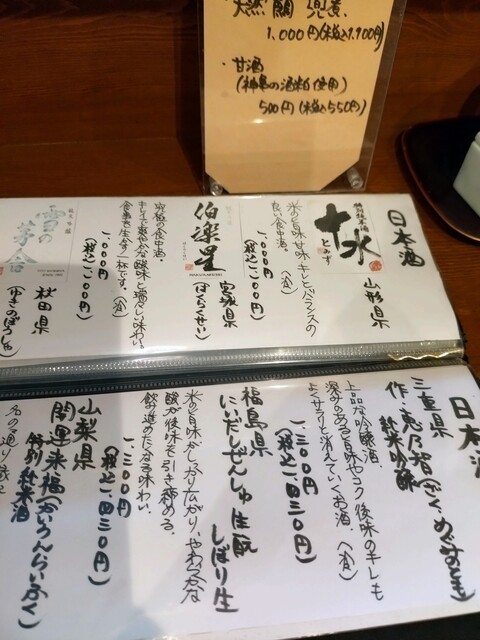 天然鯛 兜煮
1,000円(税込1,100円)
・甘酒
(神亀の酒粕使用)
500円(税込550円)
日本酒
山形県
特別純米酒
十水
とみず
米の旨味、甘味、キレとバランスの
良い食中酒。(冷)
一、〇〇〇円
(税込一、一〇〇円)
宮城県
伯楽星
(はくらくせい)
究極の食中酒。
キレイで爽やかな酸味と瑞々しい味わい。
食事を生かす一杯です。(冷)
一、〇〇〇円
(税込一、一〇〇円)
秋田県
雪の茅舎
(ゆきのぼうしゃ)
日本酒
三重県
作・恵乃智(ざく、めぐみのとも)
純米吟醸
上品な吟醸酒。
深みのある旨味やコク、後味のキレも
よくサラリと消えていくお酒 (冷)
一、三〇〇円
(税込一、四三〇円)
福島県
にいだしぜんしゅ 生酛
しぼり生
米の旨味がしっかり広がり、やわらかな
酸が後味を引き締める。
飲み進めたくなる味わい。
一、三〇〇円
(税込一、四三〇円)
山梨県
開運来福(かいうんらいふく)
特別純米酒
名の通り